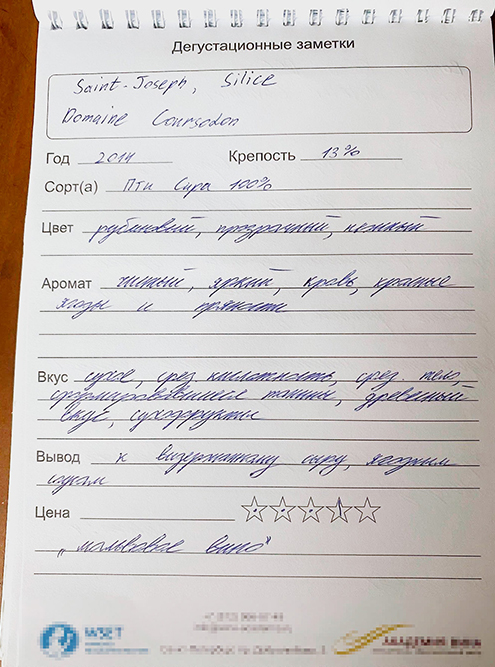 Дегустационные заметки
Saint-Joseph, Silice
Domaine Coursodon
Год 2014 Крепость 13%
Сорт(а) Пти Сира 100%
Цвет рубиновый, прозрачный, нежный
Аромат чистый, яркий, кровь, красные
ягоды и пряности
Вкус сухое, сред. кислотность, сред. тело,
сформировавшиеся танины, древесный
вкус, сухофрукты
Вывод к выдержанному сыру, ягодным
Цена
вино"
WSET
АКАДЕМИЯ ВИНА